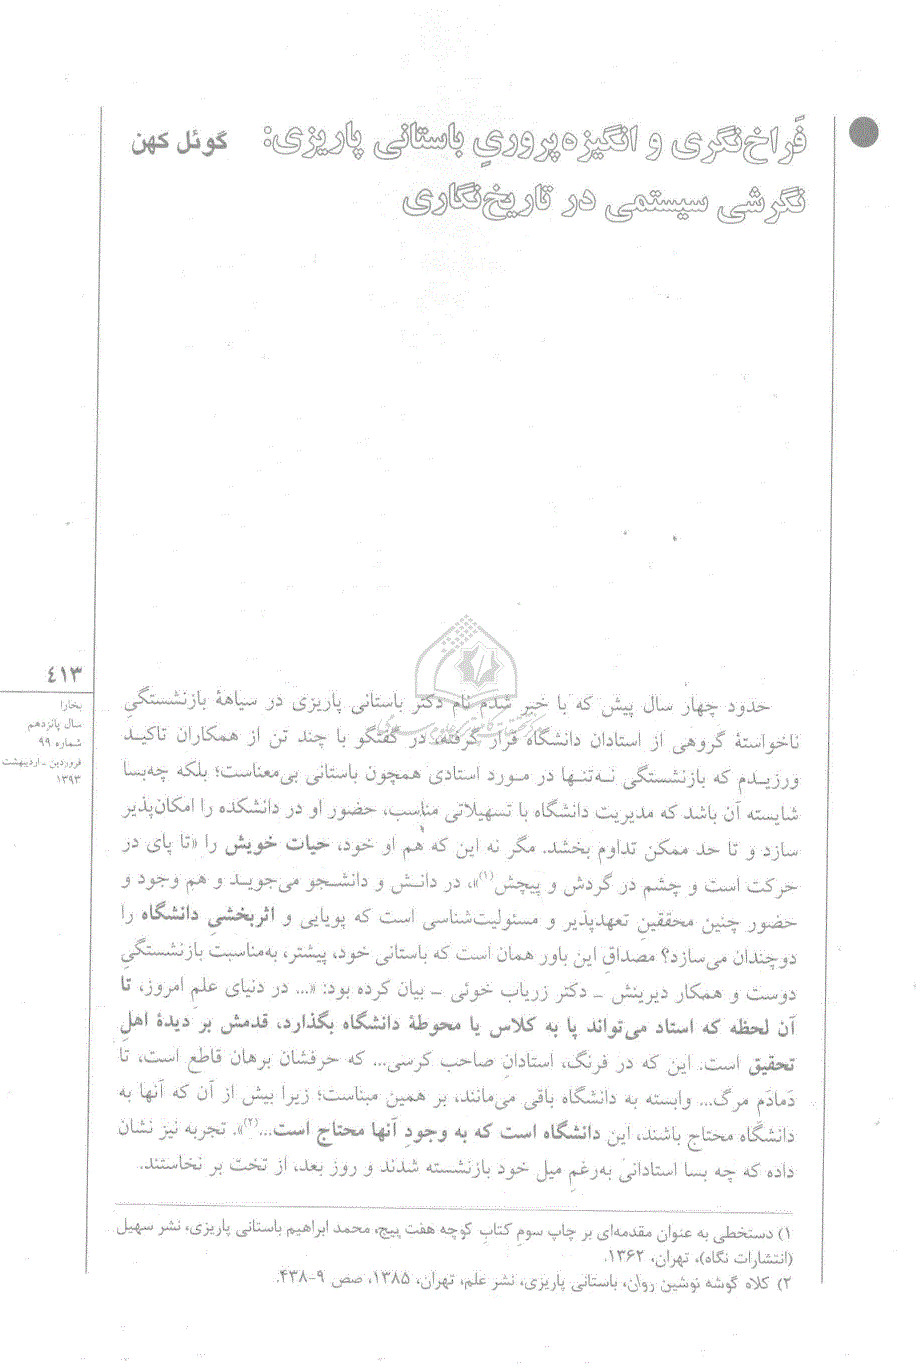 فَراخ‌نگری و انگیزه‌پروریِ باستانی پاریزی:
نگرشی سیستمی در تاریخ‌نگاری
گوئل کهن
حدود چهار سال پیش که با خبر شدم نام دکتر باستانی پاریزی در سیاههٔ بازنشستگیِ
ناخواستهٔ گروهی از استادان دانشگاه قرار گرفته، در گفتگو با چند تن از همکاران تاکید
ورزیدم که بازنشستگی نه‌تنها در مورد استادی همچون باستانی بی‌معناست؛ بلکه چه‌بسا
شایسته آن باشد که مدیریت دانشگاه با تسهیلاتی مناسب، حضور او در دانشکده را امکان‌پذیر
سازد و تا حد ممکن تداوم بخشد. مگر نه این که هم او خود، حیات خویش را «تا پای در
حرکت است و چشم در گردش و پیچش(۱)»، در دانش و دانشجو می‌جوید و هم وجود و
حضور چنین محققینِ تعهدپذیر و مسئولیت‌شناسی است که پویایی و اثربخشیِ دانشگاه را
دوچندان می‌سازد؟ مصداقِ این باور همان است که باستانی خود، پیشتر، به‌مناسبت بازنشستگیِ
دوست و همکار دیرینش ـ دکتر زریاب خوئی ـ بیان کرده بود: «... در دنیای علمِ امروز، تا
آن لحظه که استاد می‌تواند پا به کلاس یا محوطهٔ دانشگاه بگذارد، قدمش بر دیدهٔ اهلِ
تحقیق است. این که در فرنگ، استادانِ صاحب کرسی... که حرفشان برهان قاطع است، تا
دَمادَم مرگ... وابسته به دانشگاه باقی می‌مانند، بر همین مبناست؛ زیرا بیش از آن که آنها به
دانشگاه محتاج باشند، این دانشگاه است که به وجودِ آنها محتاج است...(۲)». تجربه نیز نشان
داده که چه بسا استادانی به‌رغمِ میل خود بازنشسته شدند و روز بعد، از تخت بر نخاستند.
۱) دستخطی به عنوان مقدمه‌ای بر چاپ سومِ کتابِ کوچه هفت پیچ، محمد ابراهیم باستانی پاریزی، نشر سهیل
(انتشارات نگاه)، تهران، ۱۳۶۲.
۲) کلاه گوشه نوشین روان، باستانی پاریزی، نشر علم، تهران، ۱۳۸۵، صص ۹-۴۳۸.
۴۱۳
بخارا
سال پانزدهم
شماره ۹۹
فروردین ـ اردیبهشت
۱۳۹۳